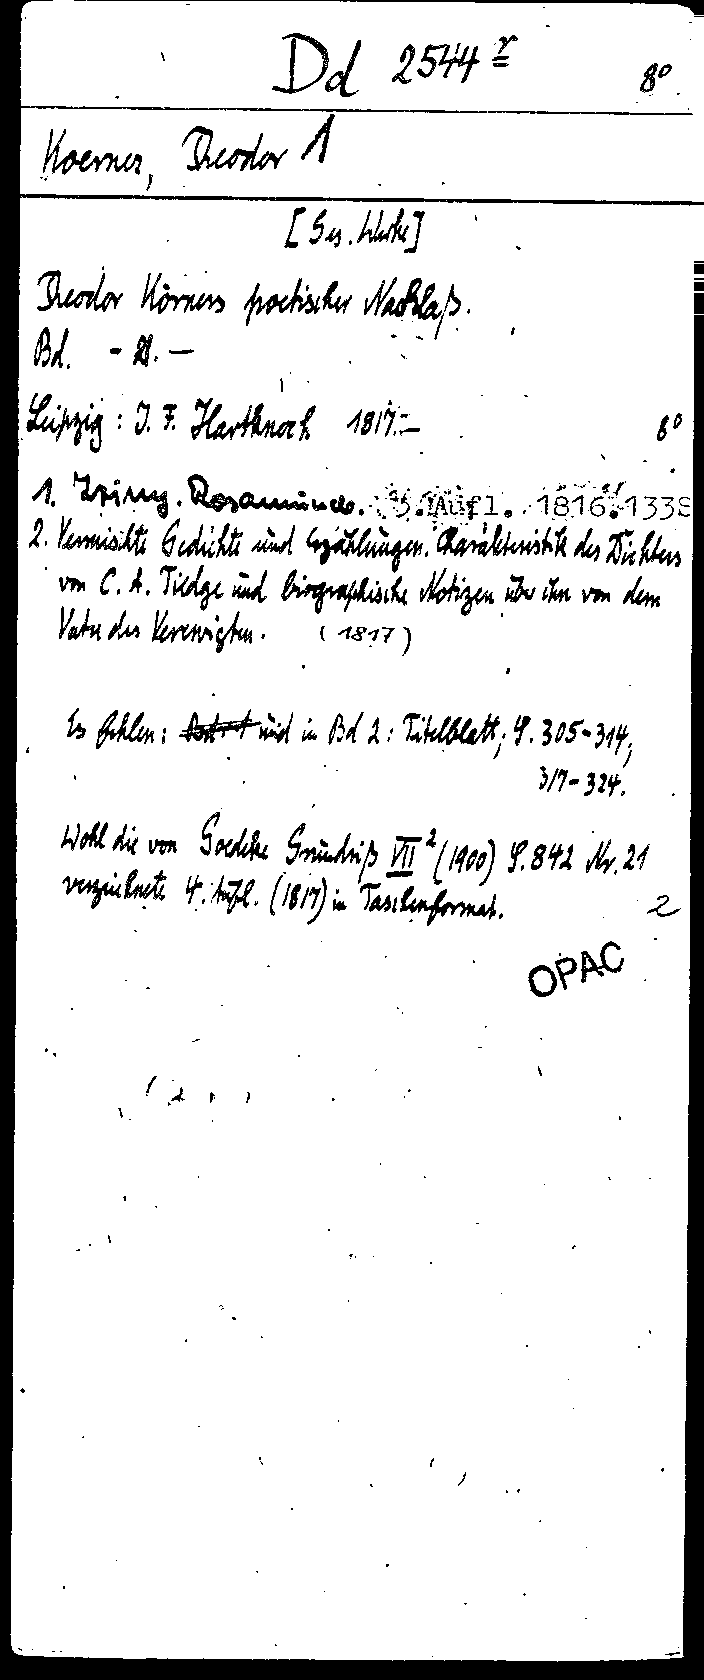 Dd 2544 r 8°
Koerner, Theodor 1
[Ges. Werke]
Theodor Körners poetischer Nachlaß.
Bd. - 2. —
Leipzig: J. F. Hartknoch 1817.- 8°
1. Zriny. Rosamunde. 3. Aufl. 1816. 1338
2. Vermischte Gedichte und Erzählungen. Charakteristik des Dichters
von C. A. Tiedge und biographische Notizen über ihn von dem
Vater des Verewigten. (1817)
Es fehlen: Bd 1 und in Bd 2: Titelblatt; S. 305-314,
317-324.
Wohl die von Goedeke Grundriß VII² (1900) S. 842 Nr. 21
verzeichnete 4. Aufl. (1817) in Taschenformat. 2
OPAC